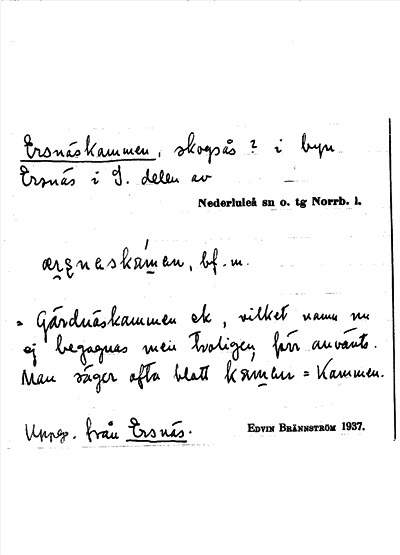 Ersnäskammen, skogsås? i byn
Ersnäs i S. delen av
Nederluleå sn o. tg Norrb. l.
bf. m.
= Gärdnäskammen ek, vilket namn nu
ej begagnas men troligen förr använts.
Man säger ofta blott = Kammen.
Uppg. från Ersnäs.
EDVIN BRÄNNSTRÖM 1937.